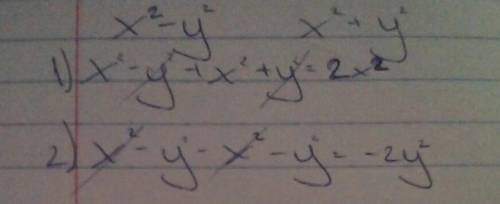 x² - y²   x² + y²
1) x² - y² + x² + y² = 2x²
2) x² - y² - x² - y² = -2y²